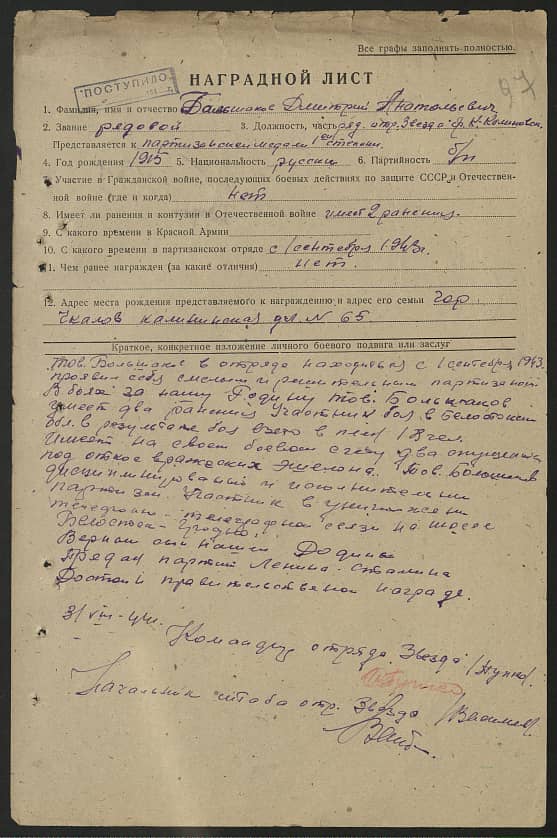 Все графы заполнять полностью.
ПОСТУПИЛО
97
НАГРАДНОЙ ЛИСТ
1. Фамилия, имя и отчество Большаков Дмитрий Анатольевич
2. Звание рядовой 3. Должность, часть ряд. отр. Звезда
Представляется к партизанской медали I степени.
4. Год рождения 1915 5. Национальность русский 6. Партийность б/п
7. Участие в Гражданской войне, последующих боевых действиях по защите СССР и Отечествен-
ной войне (где и когда) нет
8. Имеет ли ранения и контузии в Отечественной войне имеет 2 ранения.
9. С какого времени в Красной Армии
10. С какого времени в партизанском отряде с 1 сентября 1943г.
11. Чем ранее награжден (за какие отличия) нет.
12. Адрес места рождения представляемого к награждению и адрес его семьи гор.
Чкалов калининская N 65.
Краткое, конкретное изложение личного боевого подвига или заслуг
Тов. Большаков в отряде находиться с 1 сентября 1943
проявил себя смелым и решительным партизаном
В боях за нашу Родину тов. Большаков
имеет два ранения участник боя в Белостокск
обл. в результате боя взято в плен 18 чел.
Имеет на своем боевом счету два спущеных
под откос вражеских эшелона. Тов. Большаков
дисциплинированый и исполнительный
партизан. Участник в уничтожени
телефоно - телеграфной связи на шоссе
Белосток -
Верный сын нашей Родины
Предан партии Ленина - Сталина
Достоин правительственой награде.
31/VIII-44г.
Командир отряда Звезда
Начальник штаба отр. Звезда /Васильев